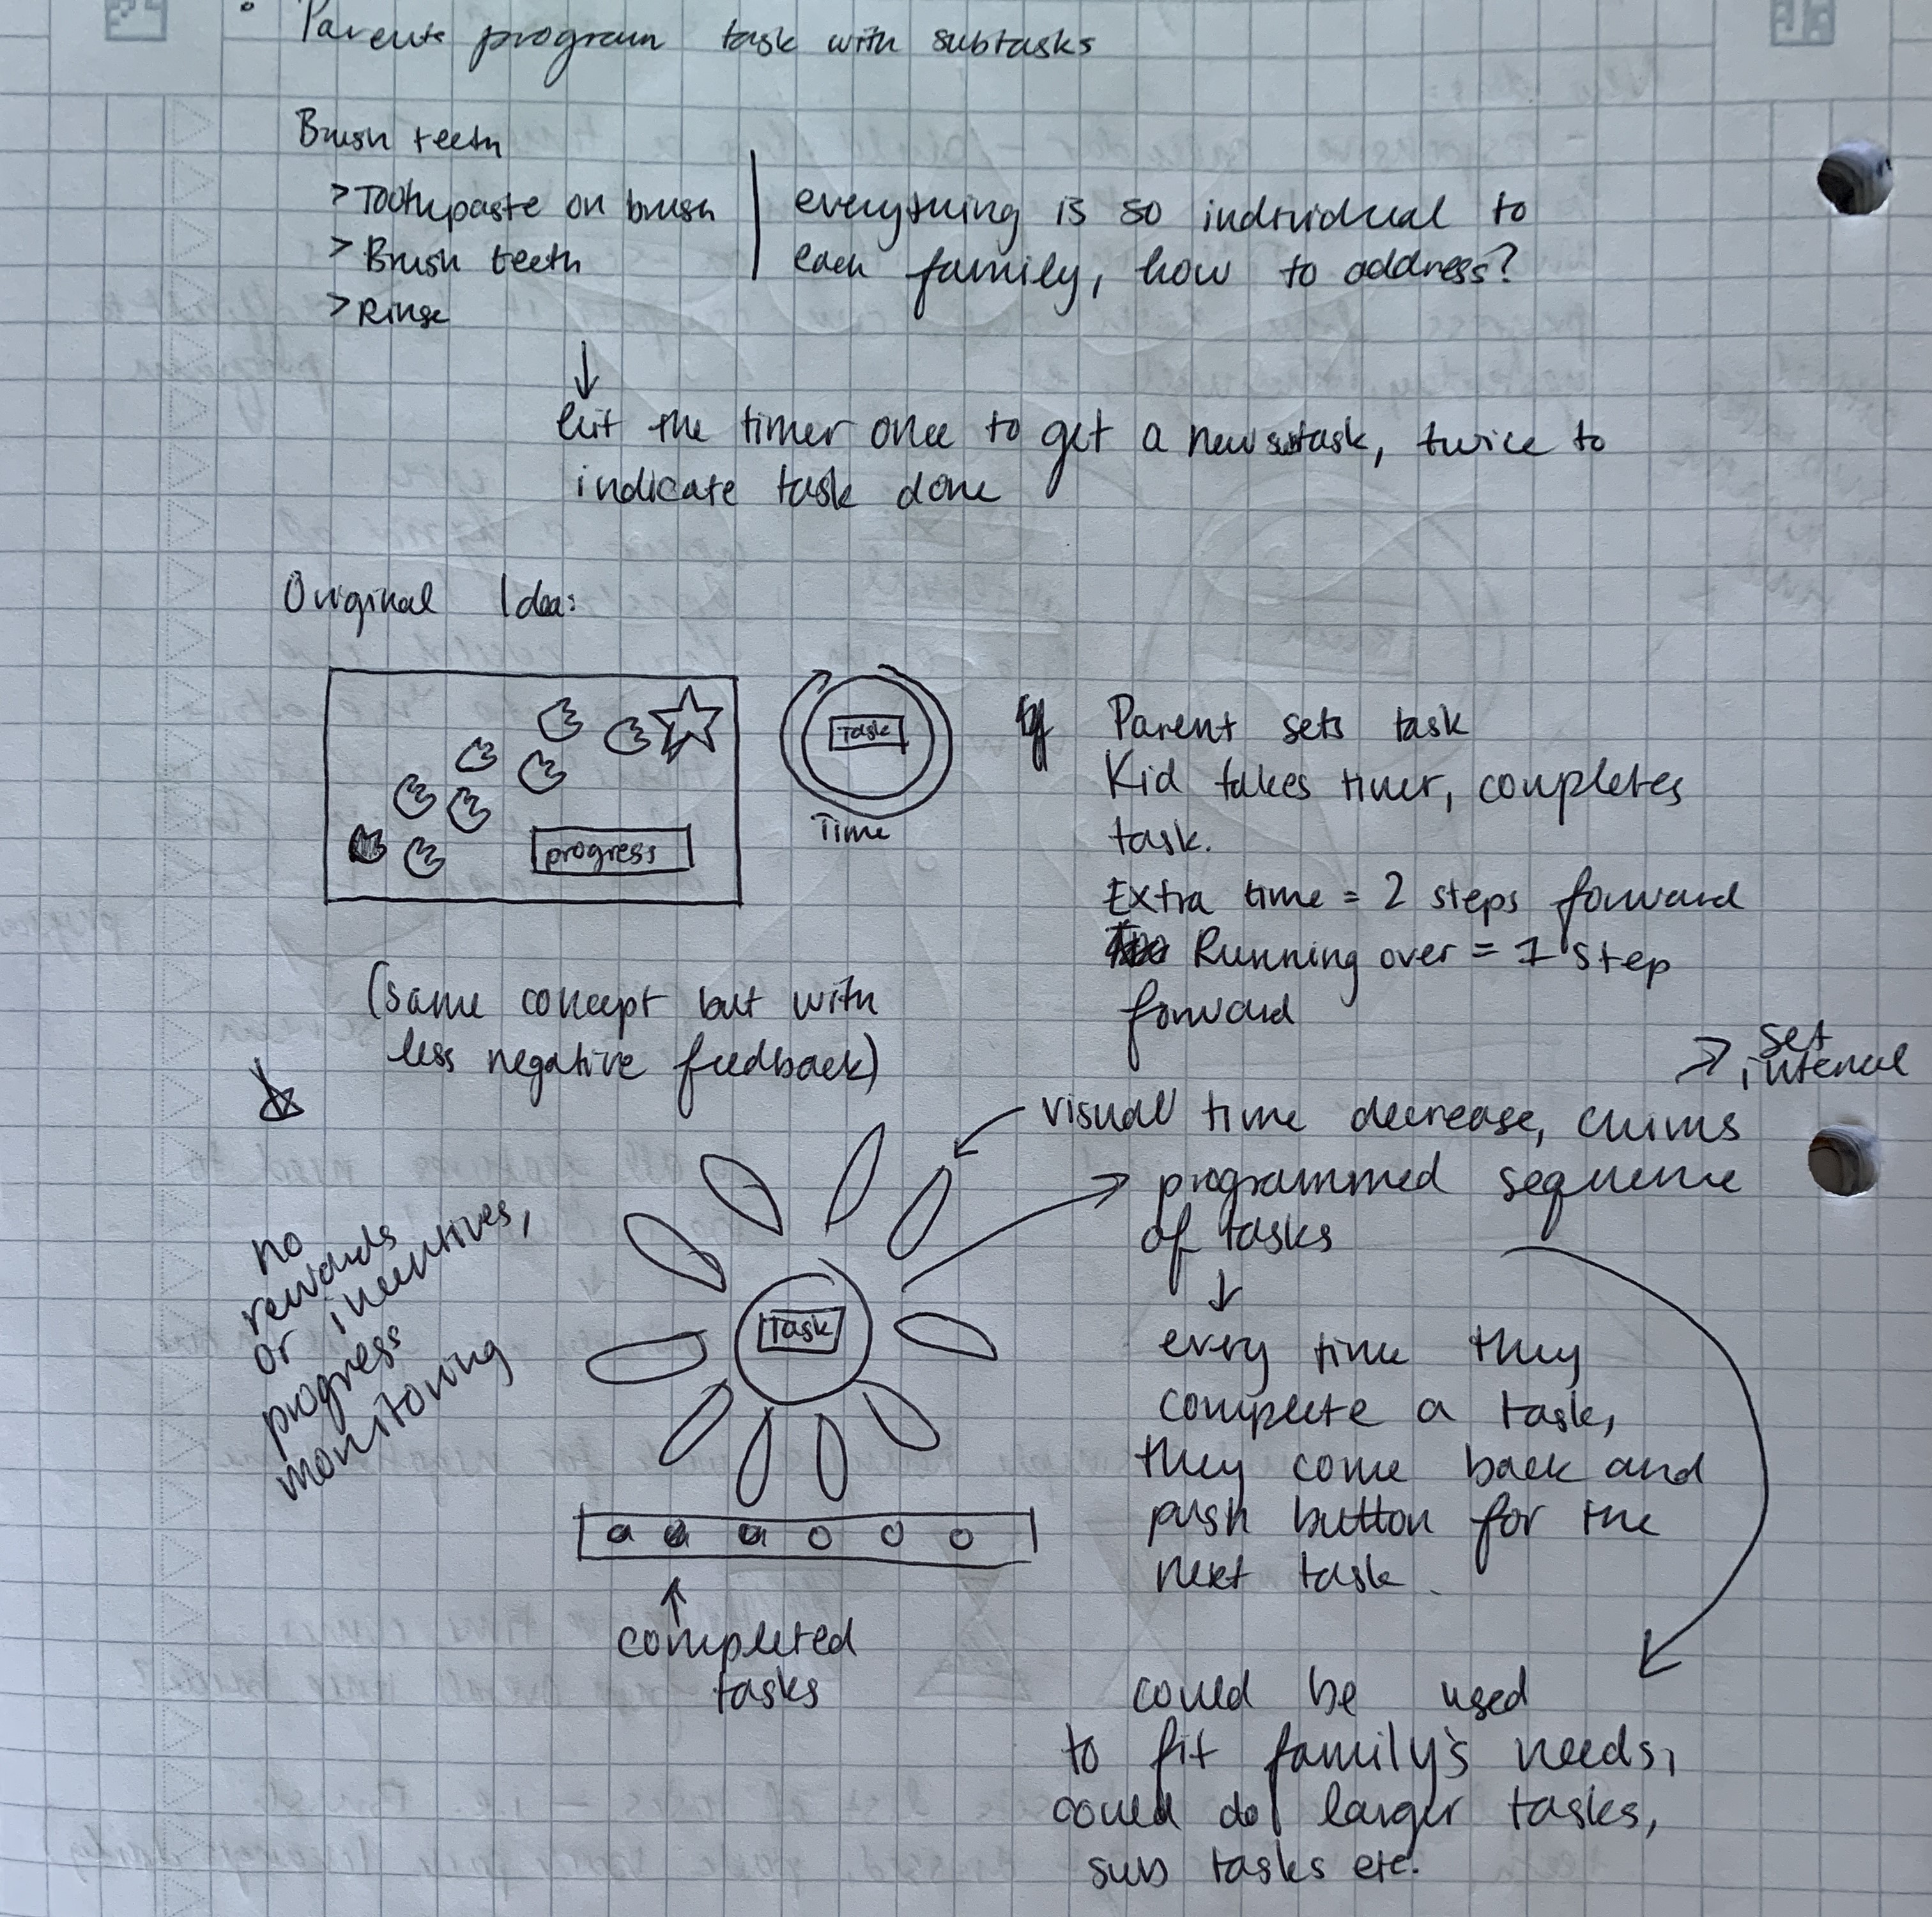 • Parents program task with subtasks
Brush teeth
> Toothpaste on brush
> Brush teeth
> Rinse
everything is so individual to
each family, how to address?
↓
hit the timer once to get a new task, twice to
indicate task done
Original Idea:
Task
Time
progress
Parent sets task
Kid takes timer, completes
task.
Extra time = 2 steps forward
Running over = 1 step
forward
(same concept but with
less negative feedback)
→ set
interval
visual time decrease, chimes
programmed sequence
of tasks
↓
every time they
complete a task,
they come back and
push button for the
next task.
no
rewards
or incentives,
progress
monitoring
Task
↑
completed
tasks
could be used
to fit family's needs,
could do larger tasks,
sub tasks etc.